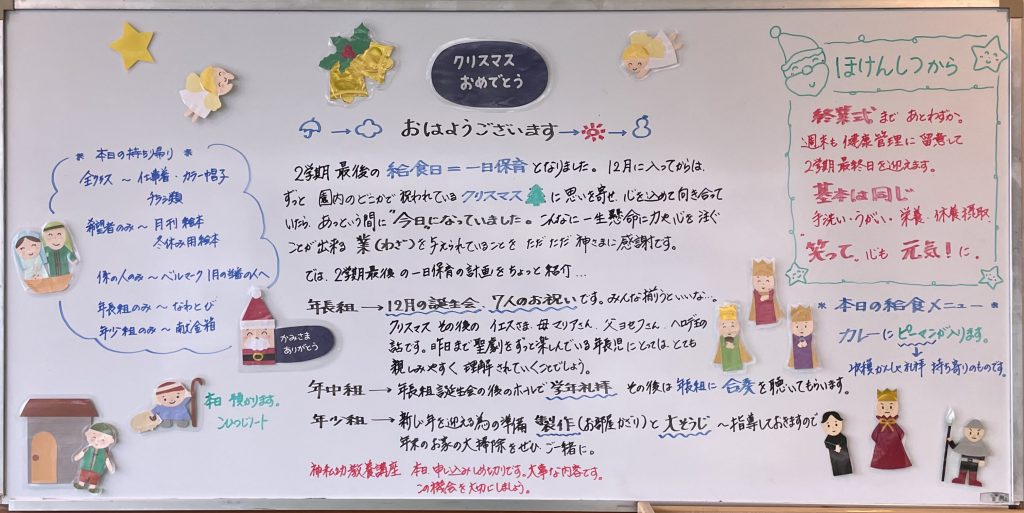 クリスマス
おめでとう
おはようございます
2学期 最後の 給食日 = 一日保育 となりました。12月に入ってからは、
ずっと 園内のどこかで 祝われている クリスマス に 思いを寄せ、心を込めて 向き合って
いたら、あっという間に "今日"になっていました。こんなに一生懸命に力や心を注ぐ
ことが出来る 業(わざ)を 与えられていることを ただただ 神さまに感謝です。
では、2学期最後の一日保育の計画をちょっと紹介…
年長組 → 12月の誕生会、7人のお祝いです。みんな揃うといいな…。
クリスマス その後の イエスさま、母マリアさん、父ヨセフさん、ヘロデ王の
話です。昨日まで聖劇をずっと楽しんでいる年長児にとっては、とても
親しみやすく 理解されていくことでしょう。
年中組 → 年長組 誕生会の後のホールで 学年礼拝 その後は 年長に 合奏を聴いてもらいます。
年少組 → 新しい年を迎える為の準備 製作(お部屋かざり)と 大そうじ 〜指導しておきますので
年末のお家の大掃除をぜひ ご一緒に。
神私幼教養講座 本日、申し込みしめ切りです。大事な内容です。
この機会を大切にしましょう。
本日の持ち帰り
全クラス〜仕事着・カラー帽子
チラシ類
希望者のみ〜月刊絵本
冬休み用絵本
係の人のみ〜ベルマーク 1月の当番の人へ
年長組のみ〜なわとび
年少組のみ〜献金箱
かみさま
ありがとう
本日 預かります。
こひつじノート
ほけんしつから
終業式まで あとわずか。
週末も 健康管理に 留意して
2学期最終日を迎えます。
基本は同じ
手洗い・うがい、栄養、休養摂取
"笑って、心も 元気!に。
本日の給食メニュー
カレーに ピーマンが入ります。
収穫かんしゃ礼拝 持ち寄りのものです。